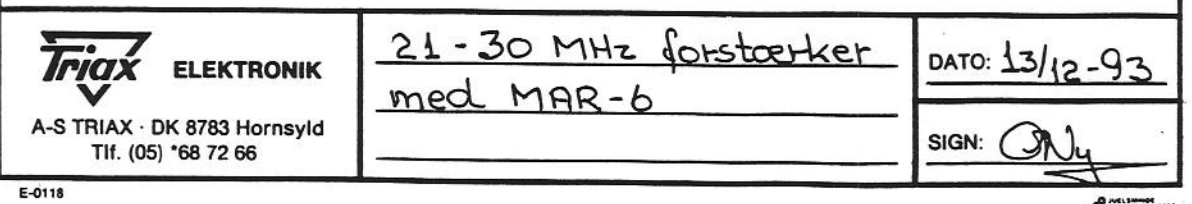 Triax ELEKTRONIK
A-S TRIAX · DK 8783 Hornsyld
Tlf. (05) *68 72 66
21-30 MHz forstærker
med MAR-6
DATO: 13/12-93
SIGN: ONy
E-0118